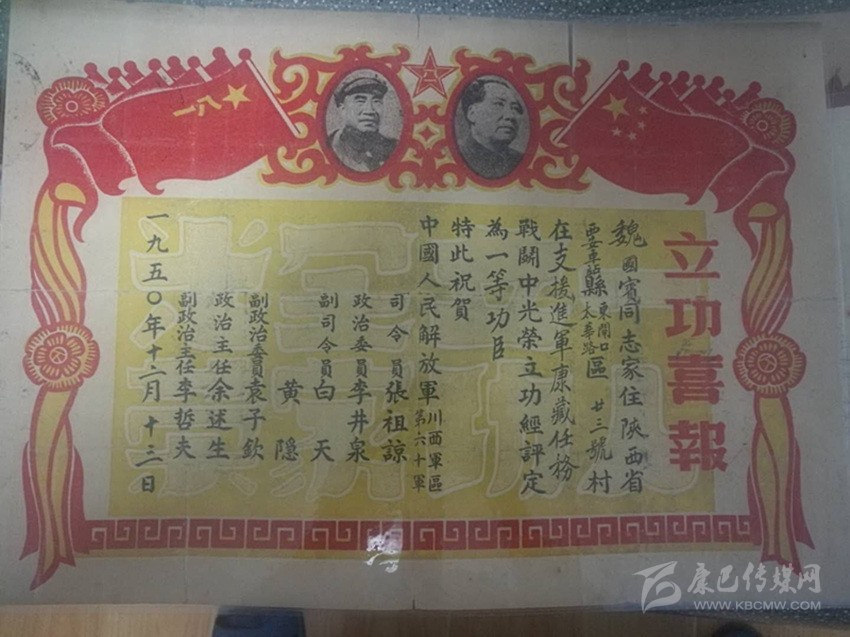 八一
立功喜報
魏國賓同志家住陝西省
縣東關口太華路區廿三號村
在支援進軍康藏任務
戰鬭中光榮立功經評定
為一等功臣
特此祝賀
中國人民解放軍川西軍區第六十軍
司令員張祖諒
政治委員李井泉
副司令員白天
黃隱
副政治委員袁子欽
政治主任余述生
副政治主任李哲夫
一九五〇年十二月十三日
康巴传媒网
WWW.KBCMW.COM